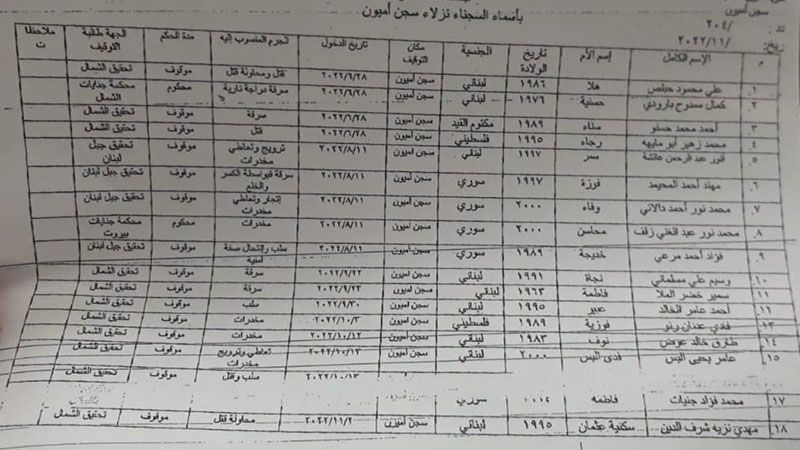 سجن أميون
٢٠٤/
تاريخ: /٢٠٢٢/١١
بأسماء السجناء نزلاء سجن أميون
م الإسم الكامل إسم الأم تاريخ الولادة الجنسية مكان التوقيف تاريخ الدخول الجرم المنسوب إليه مدة الحكم الجهة طالبة التوقيف ملاحظات
١. علي محمود حبلص هلا ١٩٨٦ لبناني سجن أميون ٢٠٢٢/٦/٢٨ قتل ومحاولة قتل موقوف تحقيق الشمال
٢. كمال ممدوح بارودي حسنية ١٩٧٦ لبناني سجن أميون ٢٠٢٢/٦/٢٨ سرقة دراجة نارية محكوم محكمة جنايات الشمال
٣. أحمد محمد حسنو سناء ١٩٨٩ مكتوم القيد سجن أميون ٢٠٢٢/٦/٢٨ سرقة موقوف تحقيق الشمال
٤. محمد زهير أبو مايهه رجاء ١٩٩٥ فلسطيني سجن أميون ٢٠٢٢/٦/٢٨ قتل موقوف تحقيق الشمال
٥. أنور عبد الرحمن عائشة سمر ١٩٩٧ لبناني سجن أميون ٢٠٢٢/٨/١١ ترويج وتعاطي مخدرات موقوف تحقيق جبل لبنان
٦. مهند أحمد المحيمد فوزة ١٩٩٧ سوري سجن أميون ٢٠٢٢/٨/١١ سرقة بواسطة الكسر والخلع موقوف تحقيق جبل لبنان
٧. محمد نور أحمد دالاتي وفاء ٢٠٠٠ سوري سجن أميون ٢٠٢٢/٨/١١ إتجار وتعاطي مخدرات موقوف تحقيق جبل لبنان
٨. محمد نور عبد الغني زلف محاسن ٢٠٠٠ سوري سجن أميون ٢٠٢٢/٨/١١ مخدرات محكوم محكمة جنايات بيروت
٩. فؤاد أحمد مرعي خديجة ١٩٨٩ سوري سجن أميون ٢٠٢٢/٨/١١ سلب وإنتحال صفة أمنية موقوف تحقيق جبل لبنان
١٠. وسيم علي مسلماني نجاة ١٩٩١ لبناني سجن أميون ٢٠٢٢/٩/٢٢ سرقة موقوف تحقيق الشمال
١١. سمير خضر الملا فاطمة ١٩٦٣ لبناني سجن أميون ٢٠٢٢/٩/٢٣ سرقة موقوف تحقيق الشمال
أحمد عامر الخالد عبير ١٩٩٥ لبناني سجن أميون ٢٠٢٢/٩/٣٠ سلب موقوف تحقيق الشمال
١٣ فادي عدنان رنو فوزية ١٩٨٩ فلسطيني سجن أميون ٢٠٢٢/١٠/٣ مخدرات موقوف تحقيق الشمال
١٤ طارق خالد عوض نوف ١٩٨٣ لبناني سجن أميون ٢٠٢٢/١٠/١٢ مخدرات موقوف تحقيق الشمال
١٥ عامر يحيى البس فدى البس ٢٠٠٠ لبناني سجن أميون ٢٠٢٢/١٠/١٣ تعاطي وترويج مخدرات موقوف تحقيق الشمال
سجن أميون ٢٠٢٢/١٠/١٣ سلب وقتل موقوف تحقيق الشمال
١٧ محمد فؤاد جنيات فاطمه سوري
١٨. مهدي نزيه شرف الدين سكنية عثمان ١٩٩٥ لبناني سجن أميون ٢٠٢٢/١١/٢ محاولة قتل موقوف تحقيق الشمال